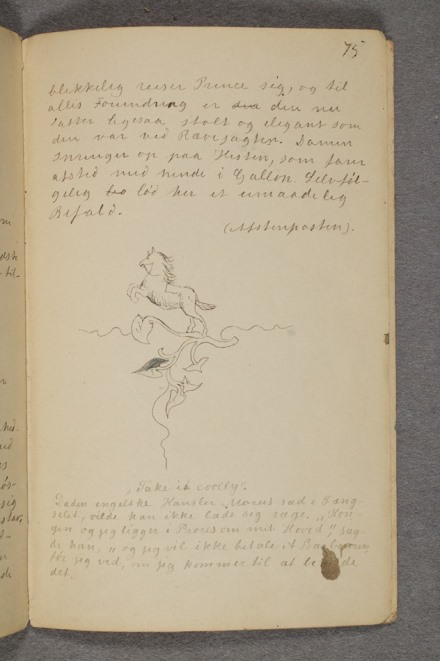 75
blikkelig reiser Prince sig, og til
alles Forundring er den nu
satser ligesaa stolt og elegant som
den var ved Rævejagten. Damen
springer op paa Hesten, som farer
afsted med hende i Gallop. Selvføl-
gelig lød her et umaadelig
Bifald.
(Aftenposten).
"Take it coolly".
Da den engelske Kansler Morus sad i Fæng-
selet, vilde han ikke lade sig rage. "Kon-
gen og jeg ligger i Proces om mit Hoved", sag-
de han, "og jeg vil ikke betale
før jeg ved, om jeg kommer til at
det.